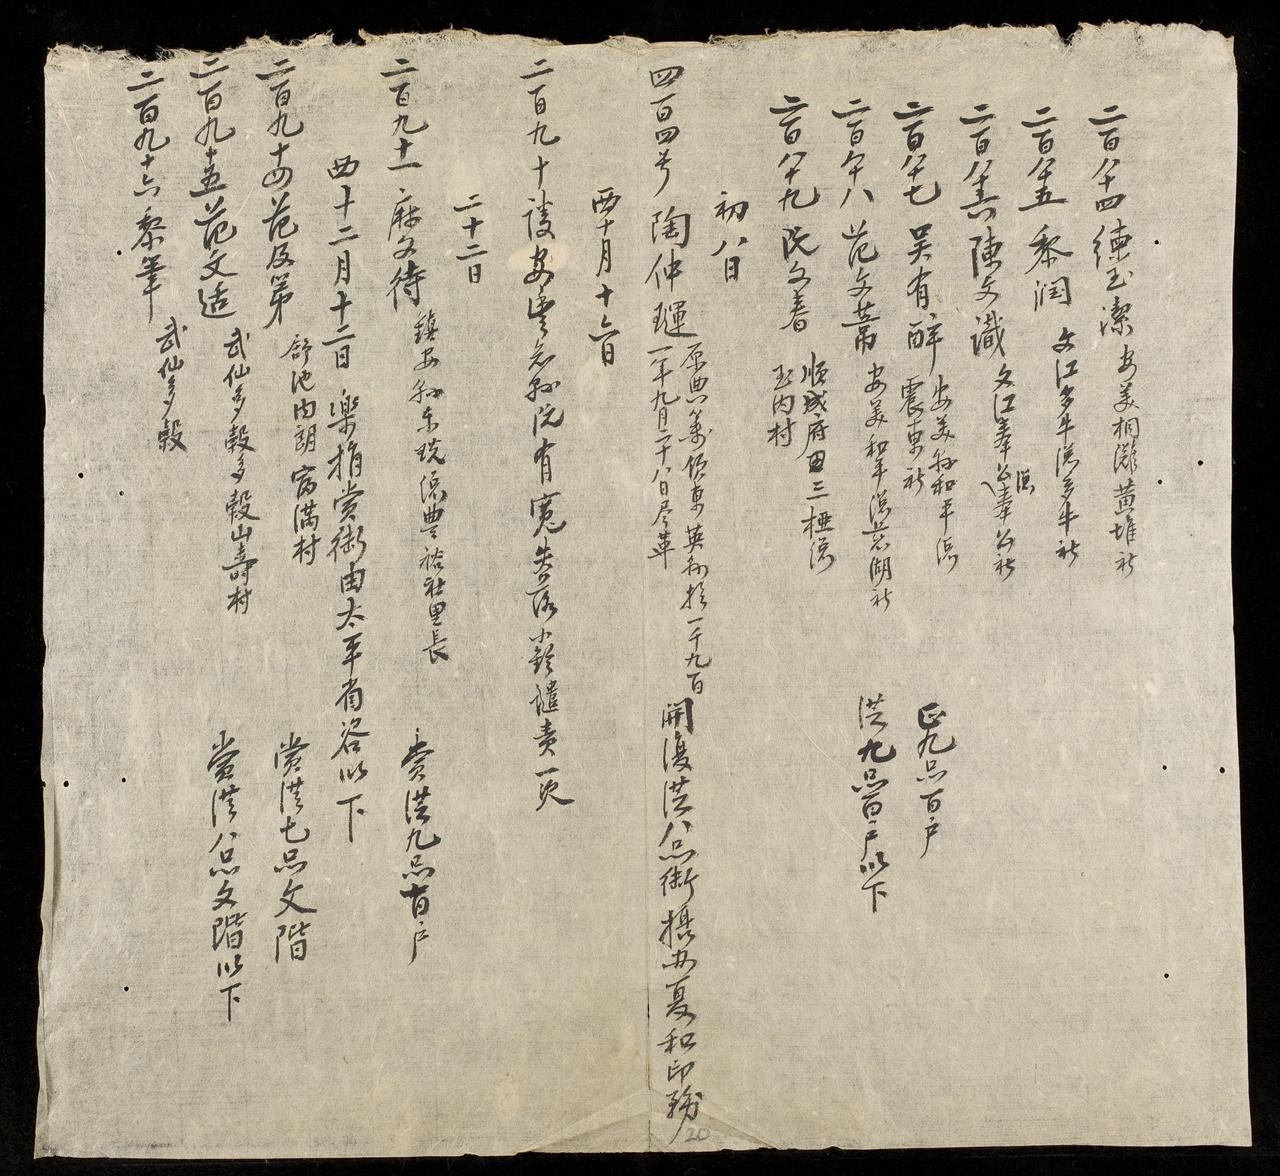 二百八十四 練玉潔 安美相灘黄堆社
二百八十五 黎潤 文江多牛總多牛社
二百八十六 陳文識 文江奉公總奉公社
二百八十七 吴有醉 安美縣和平總震東社 正九品百户
二百八十八 范文 安美和平總芸湖社 洪九品百户以下
二百八十九 阮文春 順成府田三極總玉内村
初八日
四百四号 陶仲璭 原典萬傾東英縣於一千九百一年九月二十八日尽革 開復洪八品銜攝办夏和印務
西十月十六日
二百九十 諼安豊 知縣阮有寬失落小鈴譴責一次
二十二日
二百九十一 麻文待 鎮安縣東珖總豊裕社里長 賞洪九品百户
西十二月十二日 樂捐賞銜由太平省咨以下
二百九十四 范及第 舒池内朗富滿村 賞洪七品文階
二百九十五 范文适 武仙多穀多穀山壽村 賞洪八品文階以下
二百九十六 黎筆 武仙多穀
20